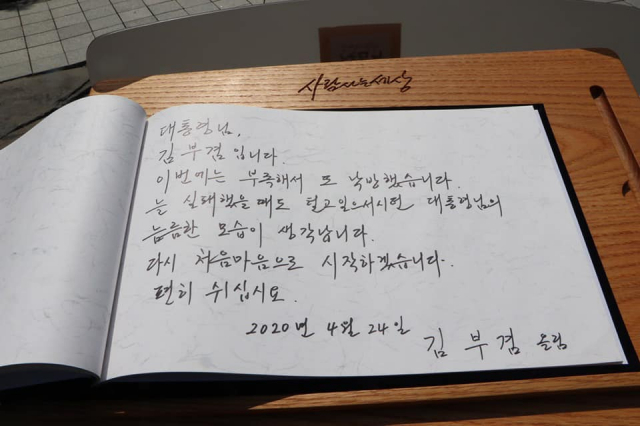 사람사는세상
대통령님,
김부겸입니다.
이번에는 부족해서 또 낙방했습니다.
늘 실패했을때도 털고일으서시던 대통령님의
늠름한 모습이 생각납니다.
다시 처음마음으로 시작하겠습니다.
편히 쉬십시요.
2020년 4월 24일
김부겸 올림